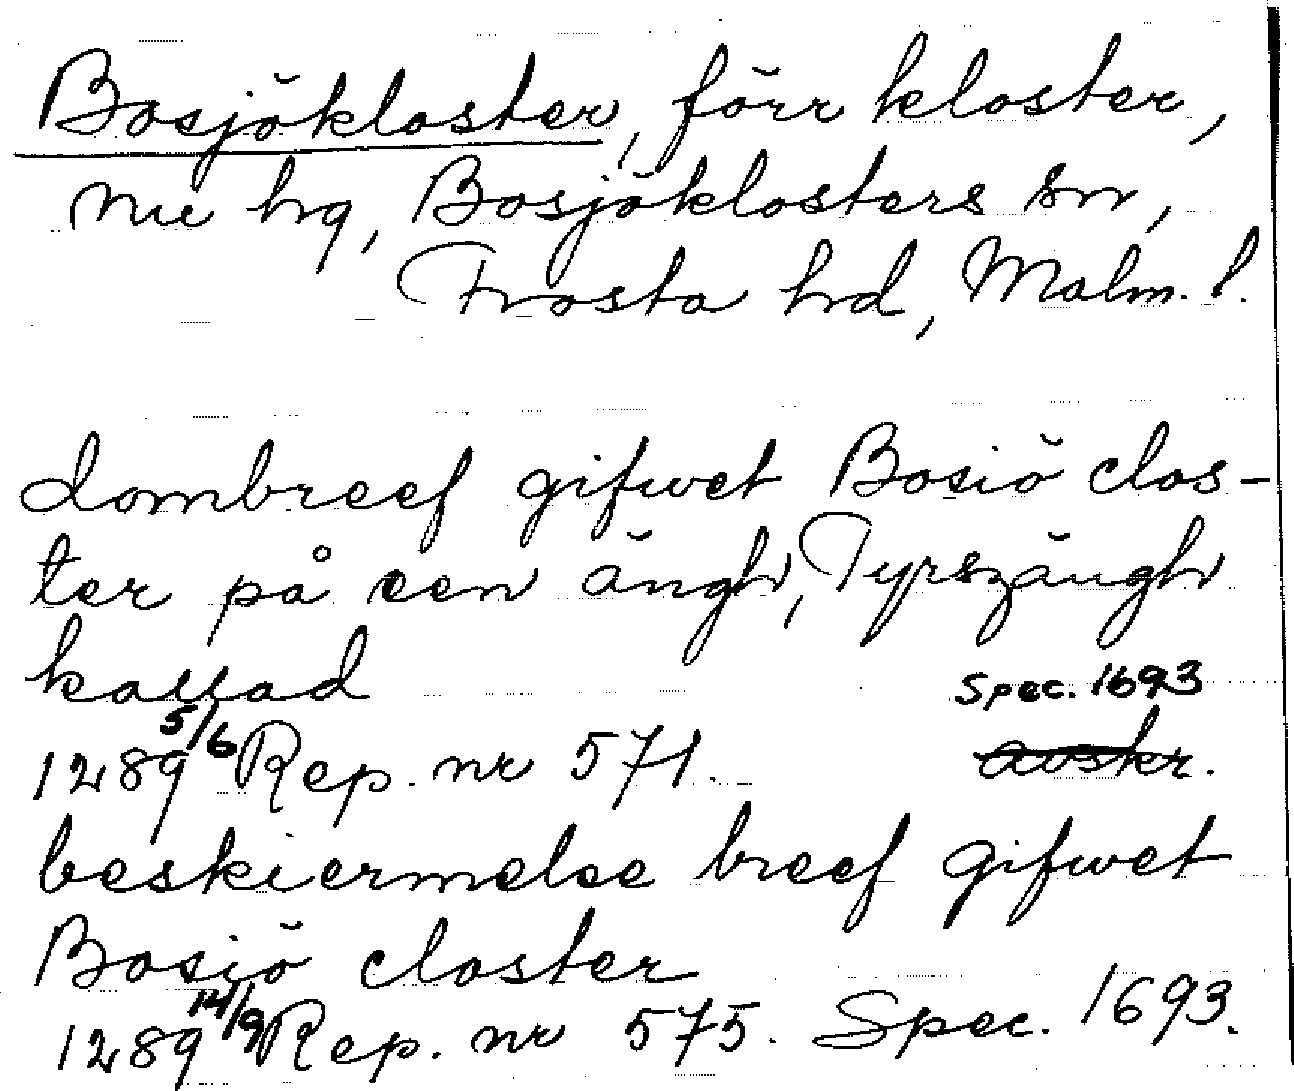 Bosjökloster, förr kloster,
nu hg, Bosjöklosters sn,
Frosta hd, Malm. l.
dombreef gifwet Bosiö clos-
ter på een ängh, Tyrszängh
kallad
Spec. 1693
1289 5/6 Rep. nr 571. avskr.
beskiermelse breef gifwet
Bosiö closter
1289 14/9 Rep. nr 575. Spec. 1693.